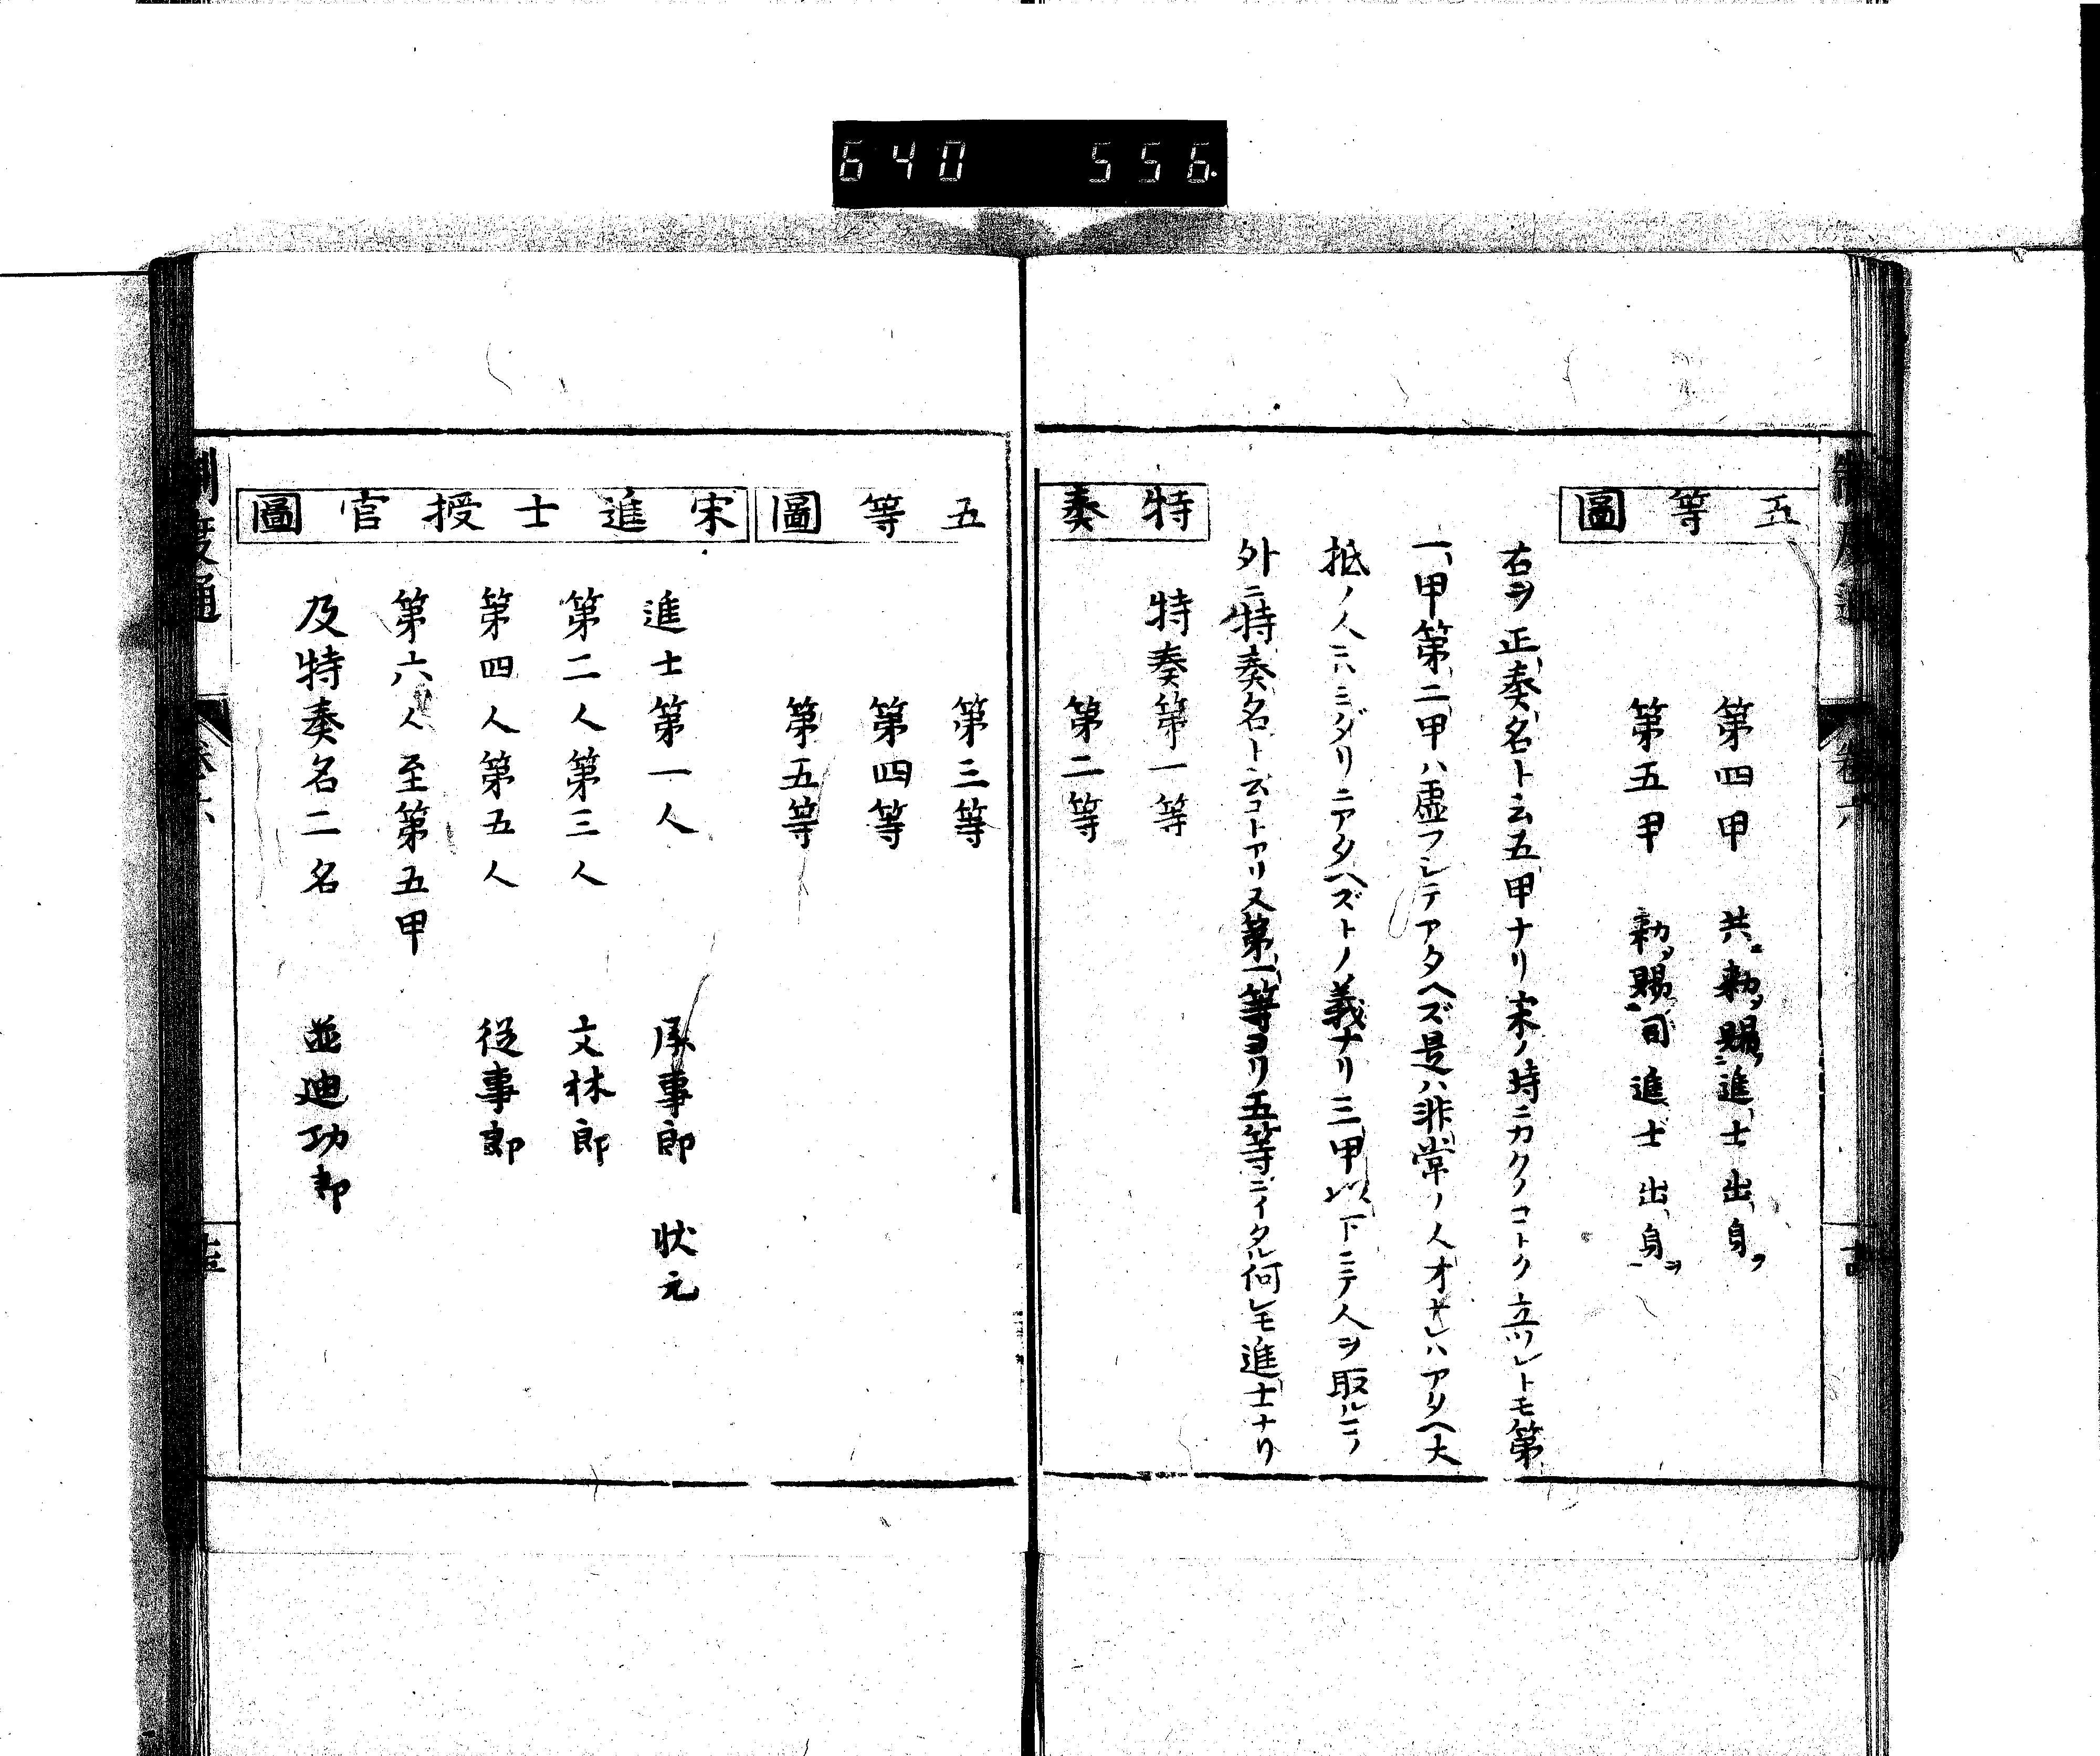 640 556
制度通 卷六
五等圖
第四甲 共ニ勅ヲ賜フ進士出身ヲ
第五甲 勅ヲ賜ニ同進士出身ヲ
右ヲ正奏名ト云五甲ナリ宋ノ時ニカクノコトク立ツレトモ第
一甲第二甲ハ虚フシテアタヘズ是ハ非常ノ人オナレハアタヘ大
抵ノ人ニハミダリニアタヘズトノ義ナリ三甲以下ニテ人ヲ取ルニソ
外ニ特奏名ト云コトアリ又第一等ヨリ五等ニイタル何レモ進士ナリ
特奏
特奏第一等
第二等
五等圖
第三等
第四等
第五等
宋進士授官圖
進士第一人 承事郎 状元
第二人第三人 文林郎
第四人第五人 從事郎
第六人至第五甲
及特奏名二名 並迪功郎
制度通 卷六